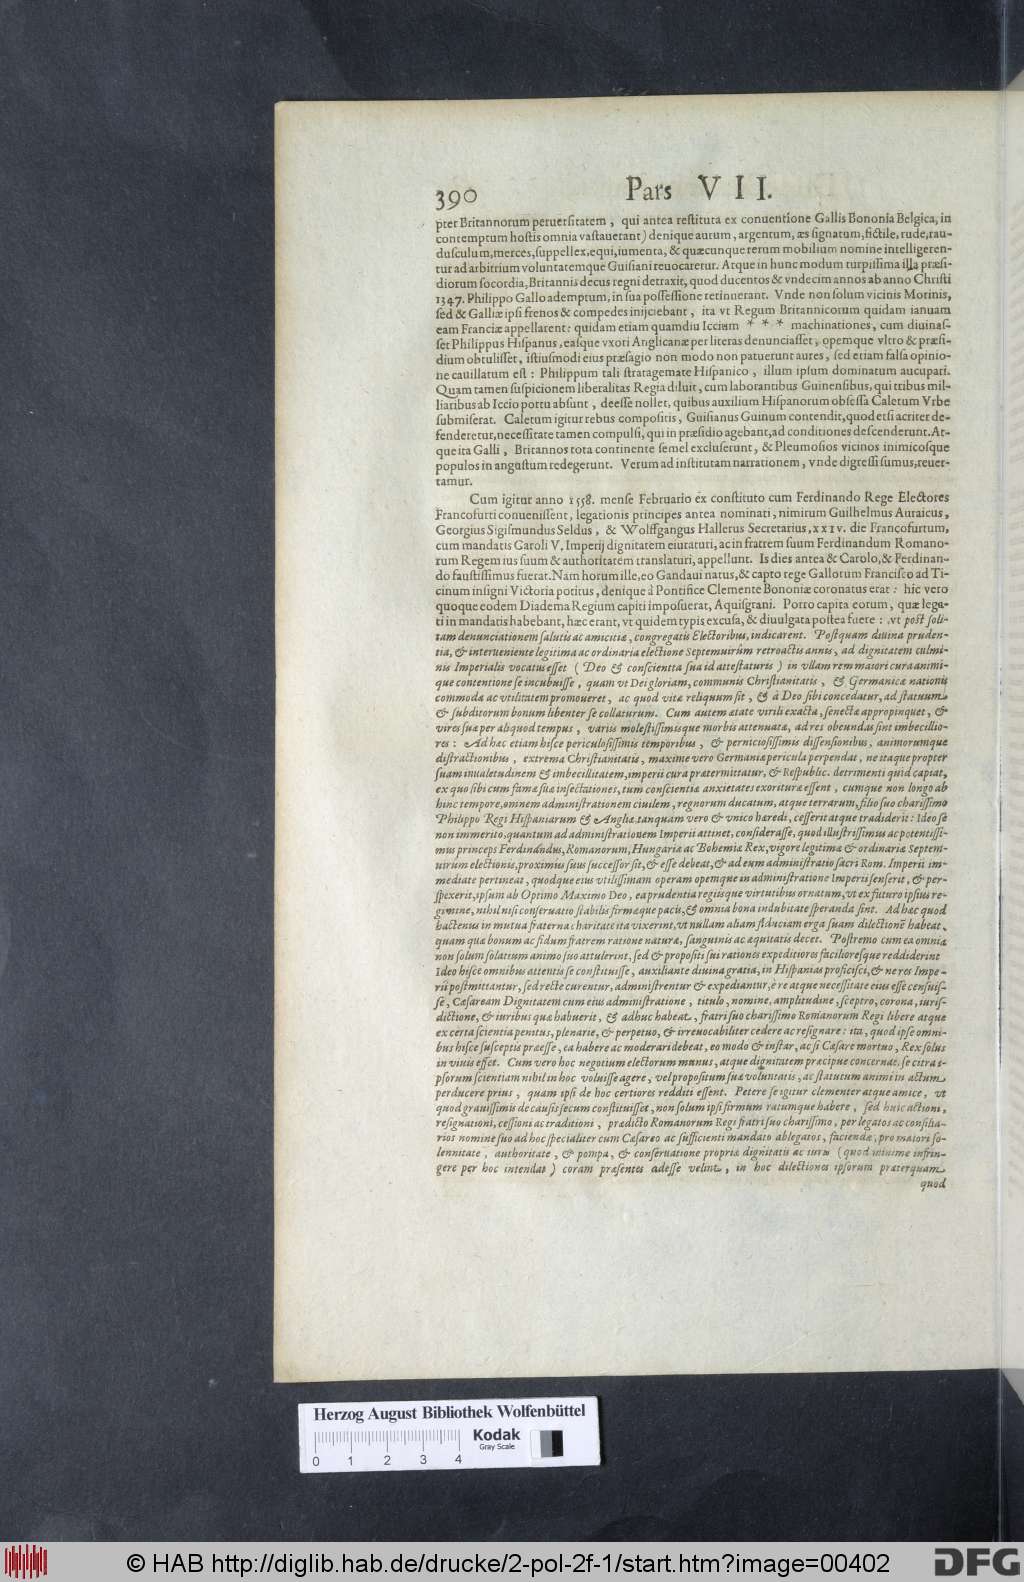 390 Pars VII.
pter Britannorum peruersitatem, qui antea restituta ex conuentione Gallis Bononia Belgica, in
contemptum hostis omnia vastauerant) denique aurum, argentum, æs signatum, fictile, rude, rau-
dusculum, merces, suppellex, equi, iumenta, & quæcunque rerum mobilium nomine intelligeren-
tur ad arbitrium voluntatemque Guisiani reuocaretur. Atque in hunc modum turpissima illa præsi-
diorum socordia, Britannis decus regni detraxit, quod ducentos & vndecim annos ab anno Christi
1347. Philippo Gallo ademptum, in sua possessione retinuerant. Vnde non solum vicinis Morinis,
sed & Galliæ ipsi frenos & compedes inijciebant, ita vt Regum Britannicorum quidam ianuam
eam Franciæ appellarent: quidam etiam quamdiu Iccium * * * machinationes, cum diuinas-
set Philippus Hispanus, easque vxori Anglicanæ per literas denunciasset, opemque vltro & præsi-
dium obtulisset, istiusmodi eius præsagio non modo non patuerunt aures, sed etiam falsa opinio-
ne cauillatum est: Philippum tali stratagemate Hispanico, illum ipsum dominatum aucupari.
Quam tamen suspicionem liberalitas Regia diluit, cum laborantibus Guinensibus, qui tribus mil-
liaribus ab Iccio portu absunt, deesse nollet, quibus auxilium Hispanorum obsessa Caletum Vrbe
submiserat. Caletum igitur rebus compositis, Guisianus Guinum contendit, quod etsi acriter de-
fenderetur, necessitate tamen compulsi, qui in præsidio agebant, ad conditiones descenderunt. At-
que ita Galli, Britannos tota continente semel excluserunt, & Pleumosios vicinos inimicosque
populos in angustum redegerunt. Verum ad institutam narrationem, vnde digressi sumus, reuer-
tamur.
Cum igitur anno 1558. mense Februario ex constituto cum Ferdinando Rege Electores
Francofurti conuenissent, legationis principes antea nominati, nimirum Guilhelmus Auraicus,
Georgius Sigismundus Seldus, & Wolffgangus Hallerus Secretarius, XXIV. die Francofurtum,
cum mandatis Caroli V. Imperij dignitatem eiuraturi, ac in fratrem suum Ferdinandum Romano-
rum Regem ius suum & authoritatem translaturi, appellunt. Is dies antea & Carolo, & Ferdinan-
do faustissimus fuerat. Nam horum ille, eo Gandaui natus, & capto rege Gallorum Francisco ad Ti-
cinum insigni Victoria potitus, denique à Pontifice Clemente Bononiæ coronatus erat: hic vero
quoque eodem Diadema Regium capiti imposuerat, Aquisgrani. Porro capita eorum, quæ lega-
ti in mandatis habebant, hæc erant, vt quidem typis excusa, & diuulgata postea fuere: vt post soli-
tam denunciationem salutis ac amicitiæ, congregatis Electoribus, indicarent. Postquam diuina pruden-
tia, & interueniente legitima ac ordinaria electione Septemuirûm retroactis annis, ad dignitatem culmi-
nis Imperialis vocatus esset (Deo & conscientia sua id attestaturis) in vllam rem maiori cura animi-
que contentione se incubuisse, quam vt Dei gloriam, communis Christianitatis, & Germanicæ nationis
commoda ac vtilitatem promoueret, ac quod vitæ reliquum sit, & à Deo sibi concedatur, ad statuum
& subditorum bonum libenter se collaturum. Cum autem ætate virili exacta, senectæ appropinquet, &
vires suæ per aliquod tempus, variis molestissimisque morbis attenuatæ, ad res obeundas sint imbecillio-
res: Ad hæc etiam hisce periculosissimis temporibus, & perniciosissimis dissensionibus, animorumque
distractionibus, extrema Christianitatis, maxime vero Germaniæ pericula perpendat, ne itaque propter
suam inualetudinem & imbecillitatem, imperii cura prætermittatur, & Respublic. detrimenti quid capiat,
ex quo sibi cum famæ suæ insectationes, tum conscientiæ anxietates exorituræ essent, cumque non longo ab
hinc tempore, omnem administrationem ciuilem, regnorum ducatum, atque terrarum, filio suo charissimo
Philippo Regi Hispaniarum & Angliæ tanquam vero & vnico hæredi, cesserit atque tradiderit: Ideo sè
non immerito, quantum ad administrationem Imperii attinet, considerasse, quod illustrissimus ac potentissi-
mus princeps Ferdinandus, Romanorum, Hungariæ ac Bohemiæ Rex, vigore legitimæ & ordinariæ Septem-
uirûm electionis, proximus suus successor sit, & esse debeat, & ad eum administratio sacri Rom. Imperii im-
mediate pertineat, quodque eius vtilissimam operam opemque in administratione Imperii senserit, & per-
spexerit, ipsum ab Optimo Maximo Deo, ea prudentia regiisque virtutibus ornatum, vt ex futuro ipsius re-
gimine, nihil nisi conseruatio stabilis firmæque pacis, & omnia bona indubitate speranda sint. Ad hæc quod
hactenus in mutua fraterna charitate ita vixerint, vt nullam aliam fiduciam erga suam dilectionē habeat,
quam quæ bonum ac fidum fratrem ratione naturæ, sanguinis ac æquitatis decet. Postremo cum ea omnia
non solum solatium animo suo attulerint, sed & propositi sui rationes expeditiores facilioresque reddiderint
Ideo hisce omnibus attentis se constituisse, auxiliante diuina gratia, in Hispanias proficisci, & ne res Impe-
rii postmittantur, sed recte curentur, administrentur & expediantur, è re atque necessitate eius esse censuis-
se, Cæsaream Dignitatem cum eius administratione, titulo, nomine, amplitudine, sceptro, corona, iuris-
dictione, & iuribus quæ habuerit, & adhuc habeat, fratri suo charissimo Romanorum Regi libere atque
ex certa scientia penitus, plenarie, & perpetuo, & irreuocabiliter cedere ac resignare: ita, quod ipse omni-
bus hisce susceptis præesse, ea habere ac moderari debeat, eo modo & instar, ac si Cæsare mortuo, Rex solus
in viuis esset. Cum vero hoc negotium electorum munus, atque dignitatem præcipue concernat, se citra i-
psorum scientiam nihil in hoc voluisse agere, vel propositum suæ voluntatis, ac statutum animi in actum
perducere prius, quam ipsi de hoc certiores redditi essent. Petere se igitur clementer atque amice, vt
quod grauissimis de causis secum constituisset, non solum ipsi firmum ratumque habere, sed huic actioni,
resignationi, cessioni ac traditioni, prædicto Romanorum Regi fratri suo charissimo, per legatos ac consilia-
rios nomine suo ad hoc specialiter cum Cæsareo ac sufficienti mandato ablegatos, faciendæ, pro maiori so-
lennitate, authoritate, & pompa, & conseruatione propriæ dignitatis ac iuris (quod minime infrin-
gere per hoc intendat) coram præsentes adesse velint, in hoc dilectiones ipsorum præterquam
quod
Herzog August Bibliothek Wolfenbüttel
Kodak
Gray Scale
0 1 2 3 4
© HAB http://diglib.hab.de/drucke/2-pol-2f-1/start.htm?image=00402
DFG